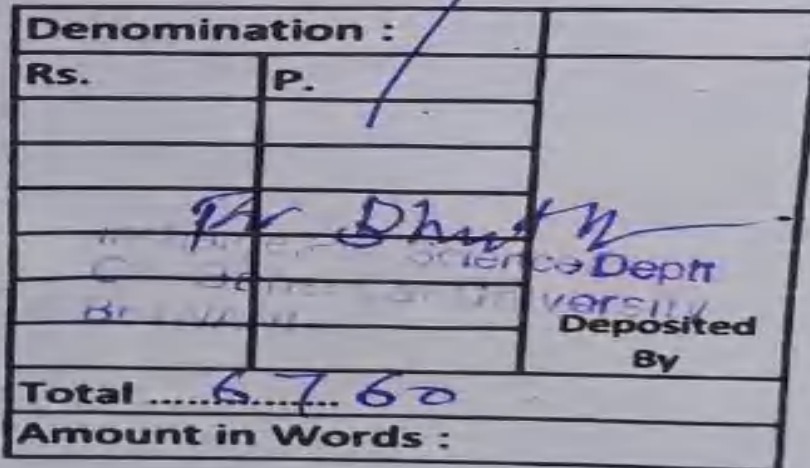 Denomination :
Rs. P.
Science Deptt
Deposited
By
Total ................ 6760
Amount in Words :